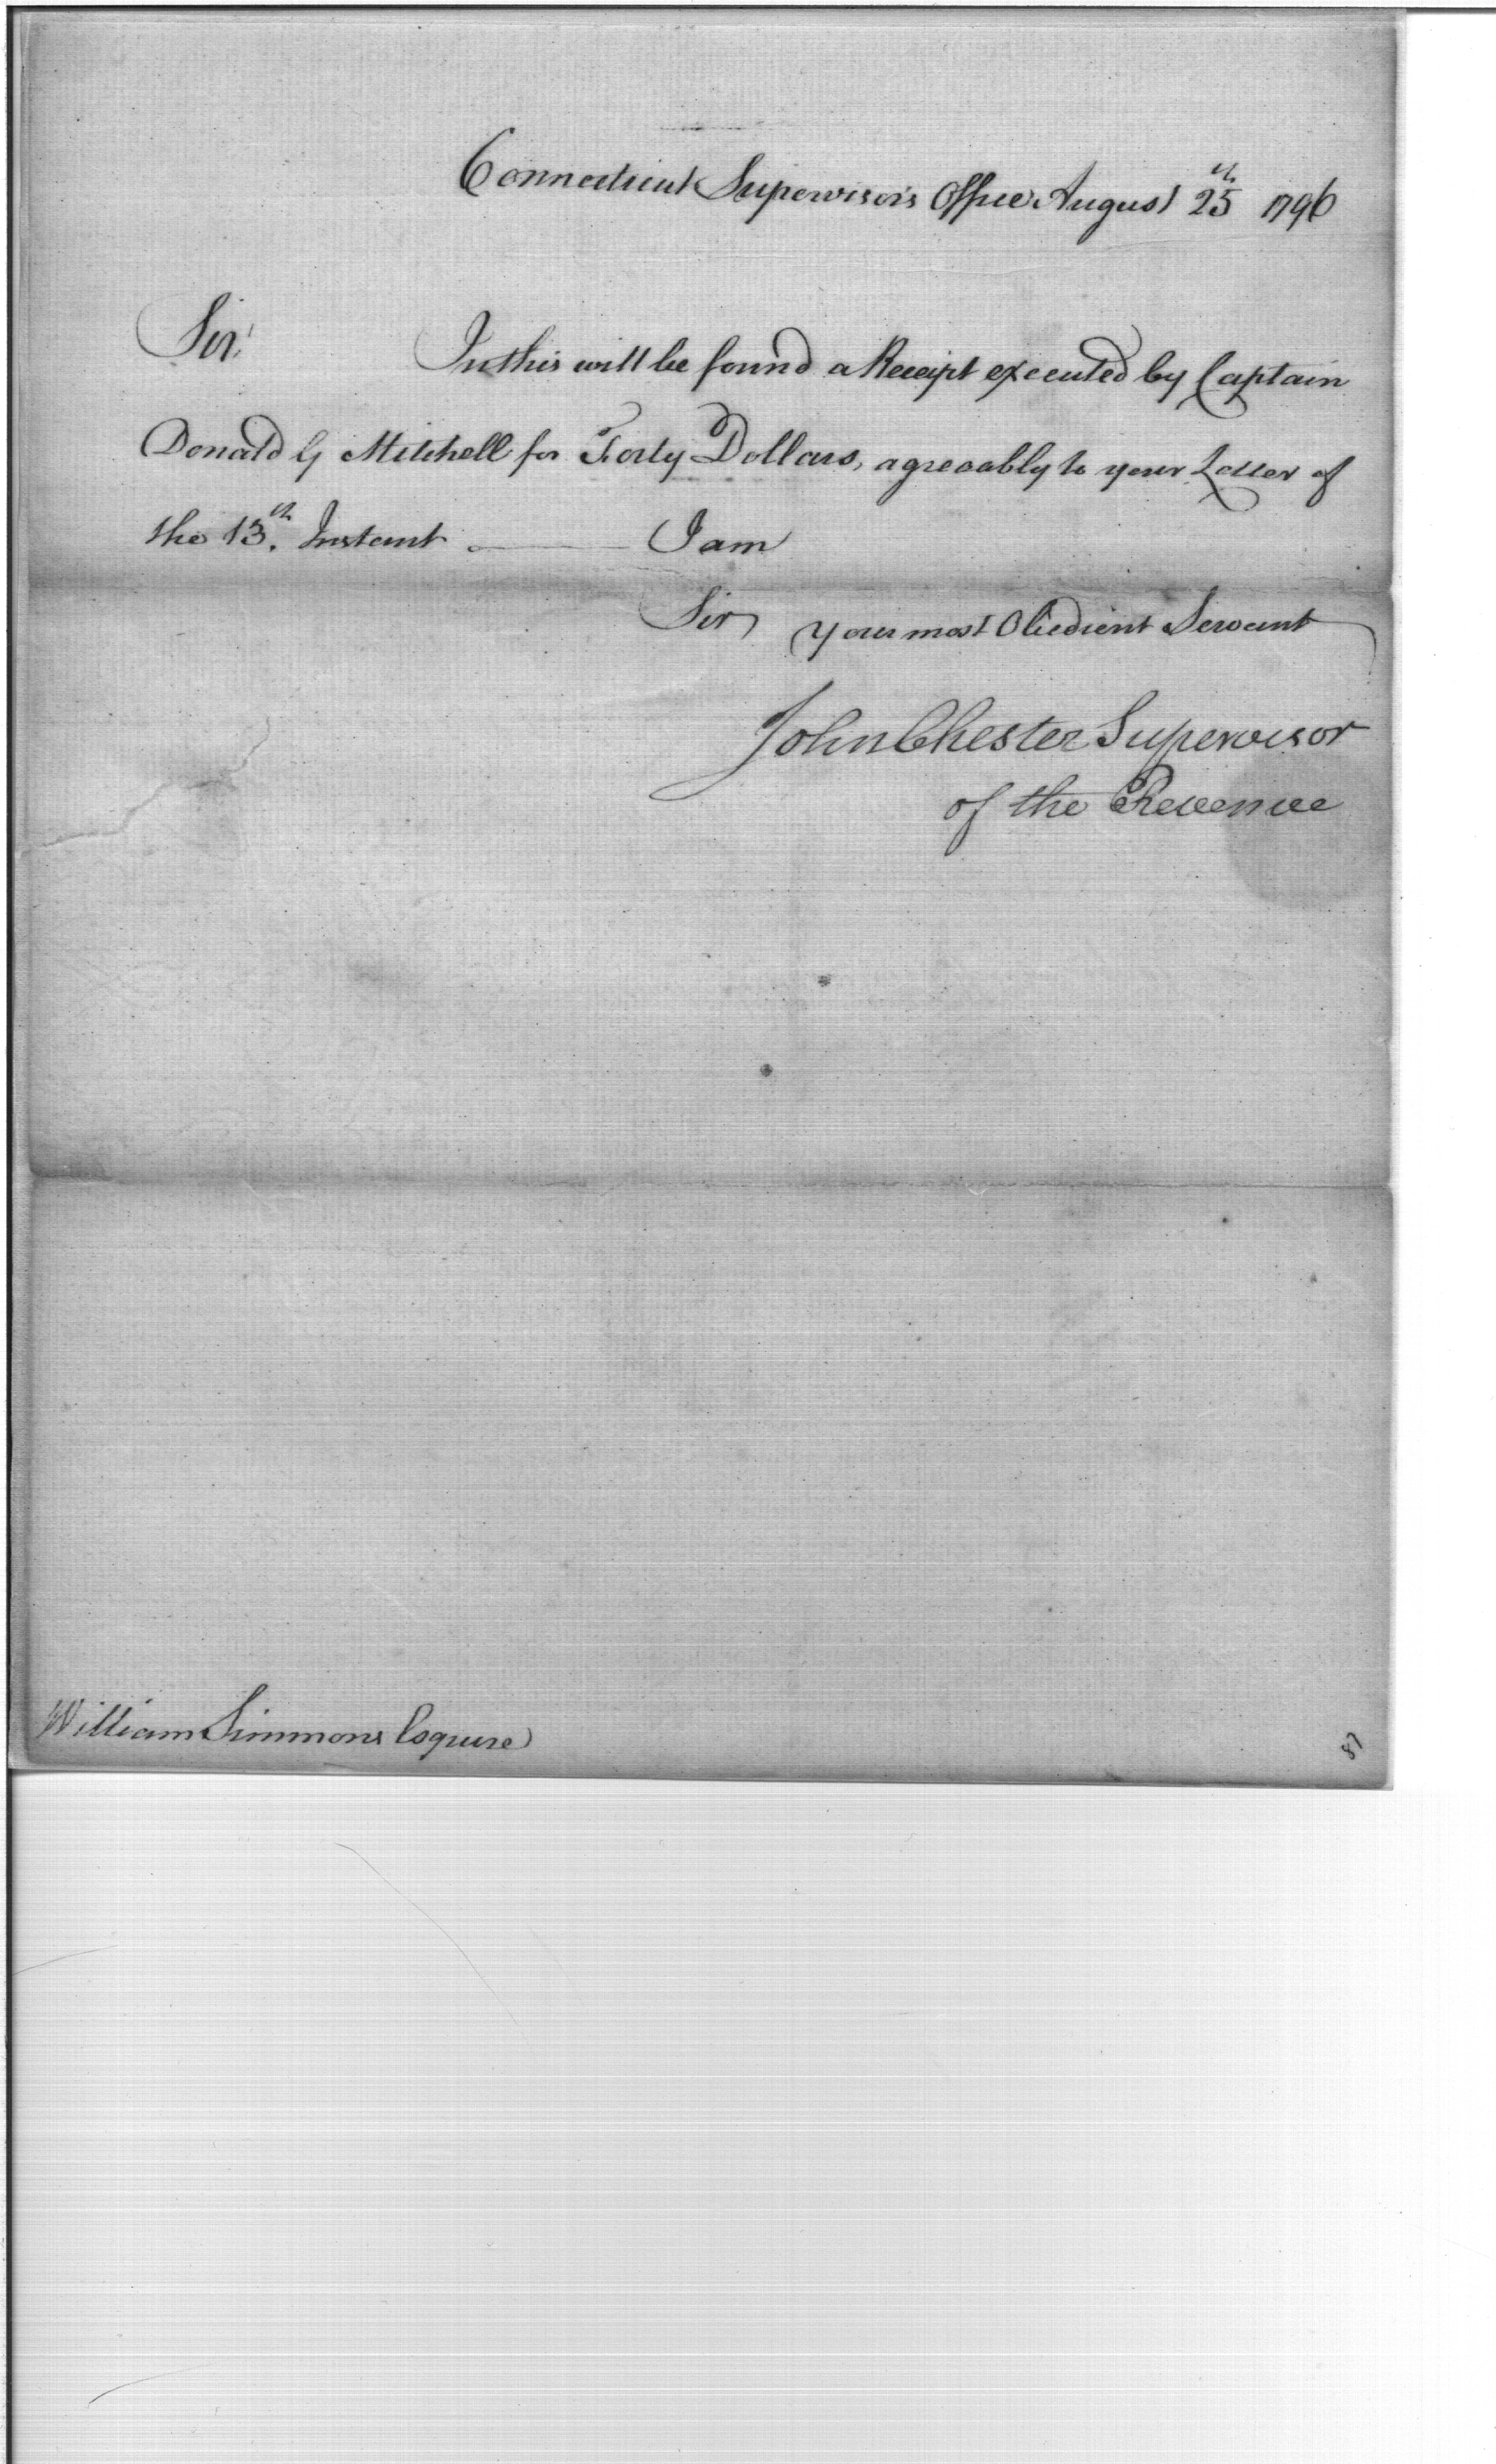 Connecticut Supervisor's Office August 25th 1796
Sir!
In this will be found a Receipt executed by Captain
Donald G Mitchell for Forty Dollars, agreeably to your Letter of
the 13th. Instant — I am
Sir your most Obedient Servant
John Chester Supervisor
of the Revenue
William Simmons Esquire
87